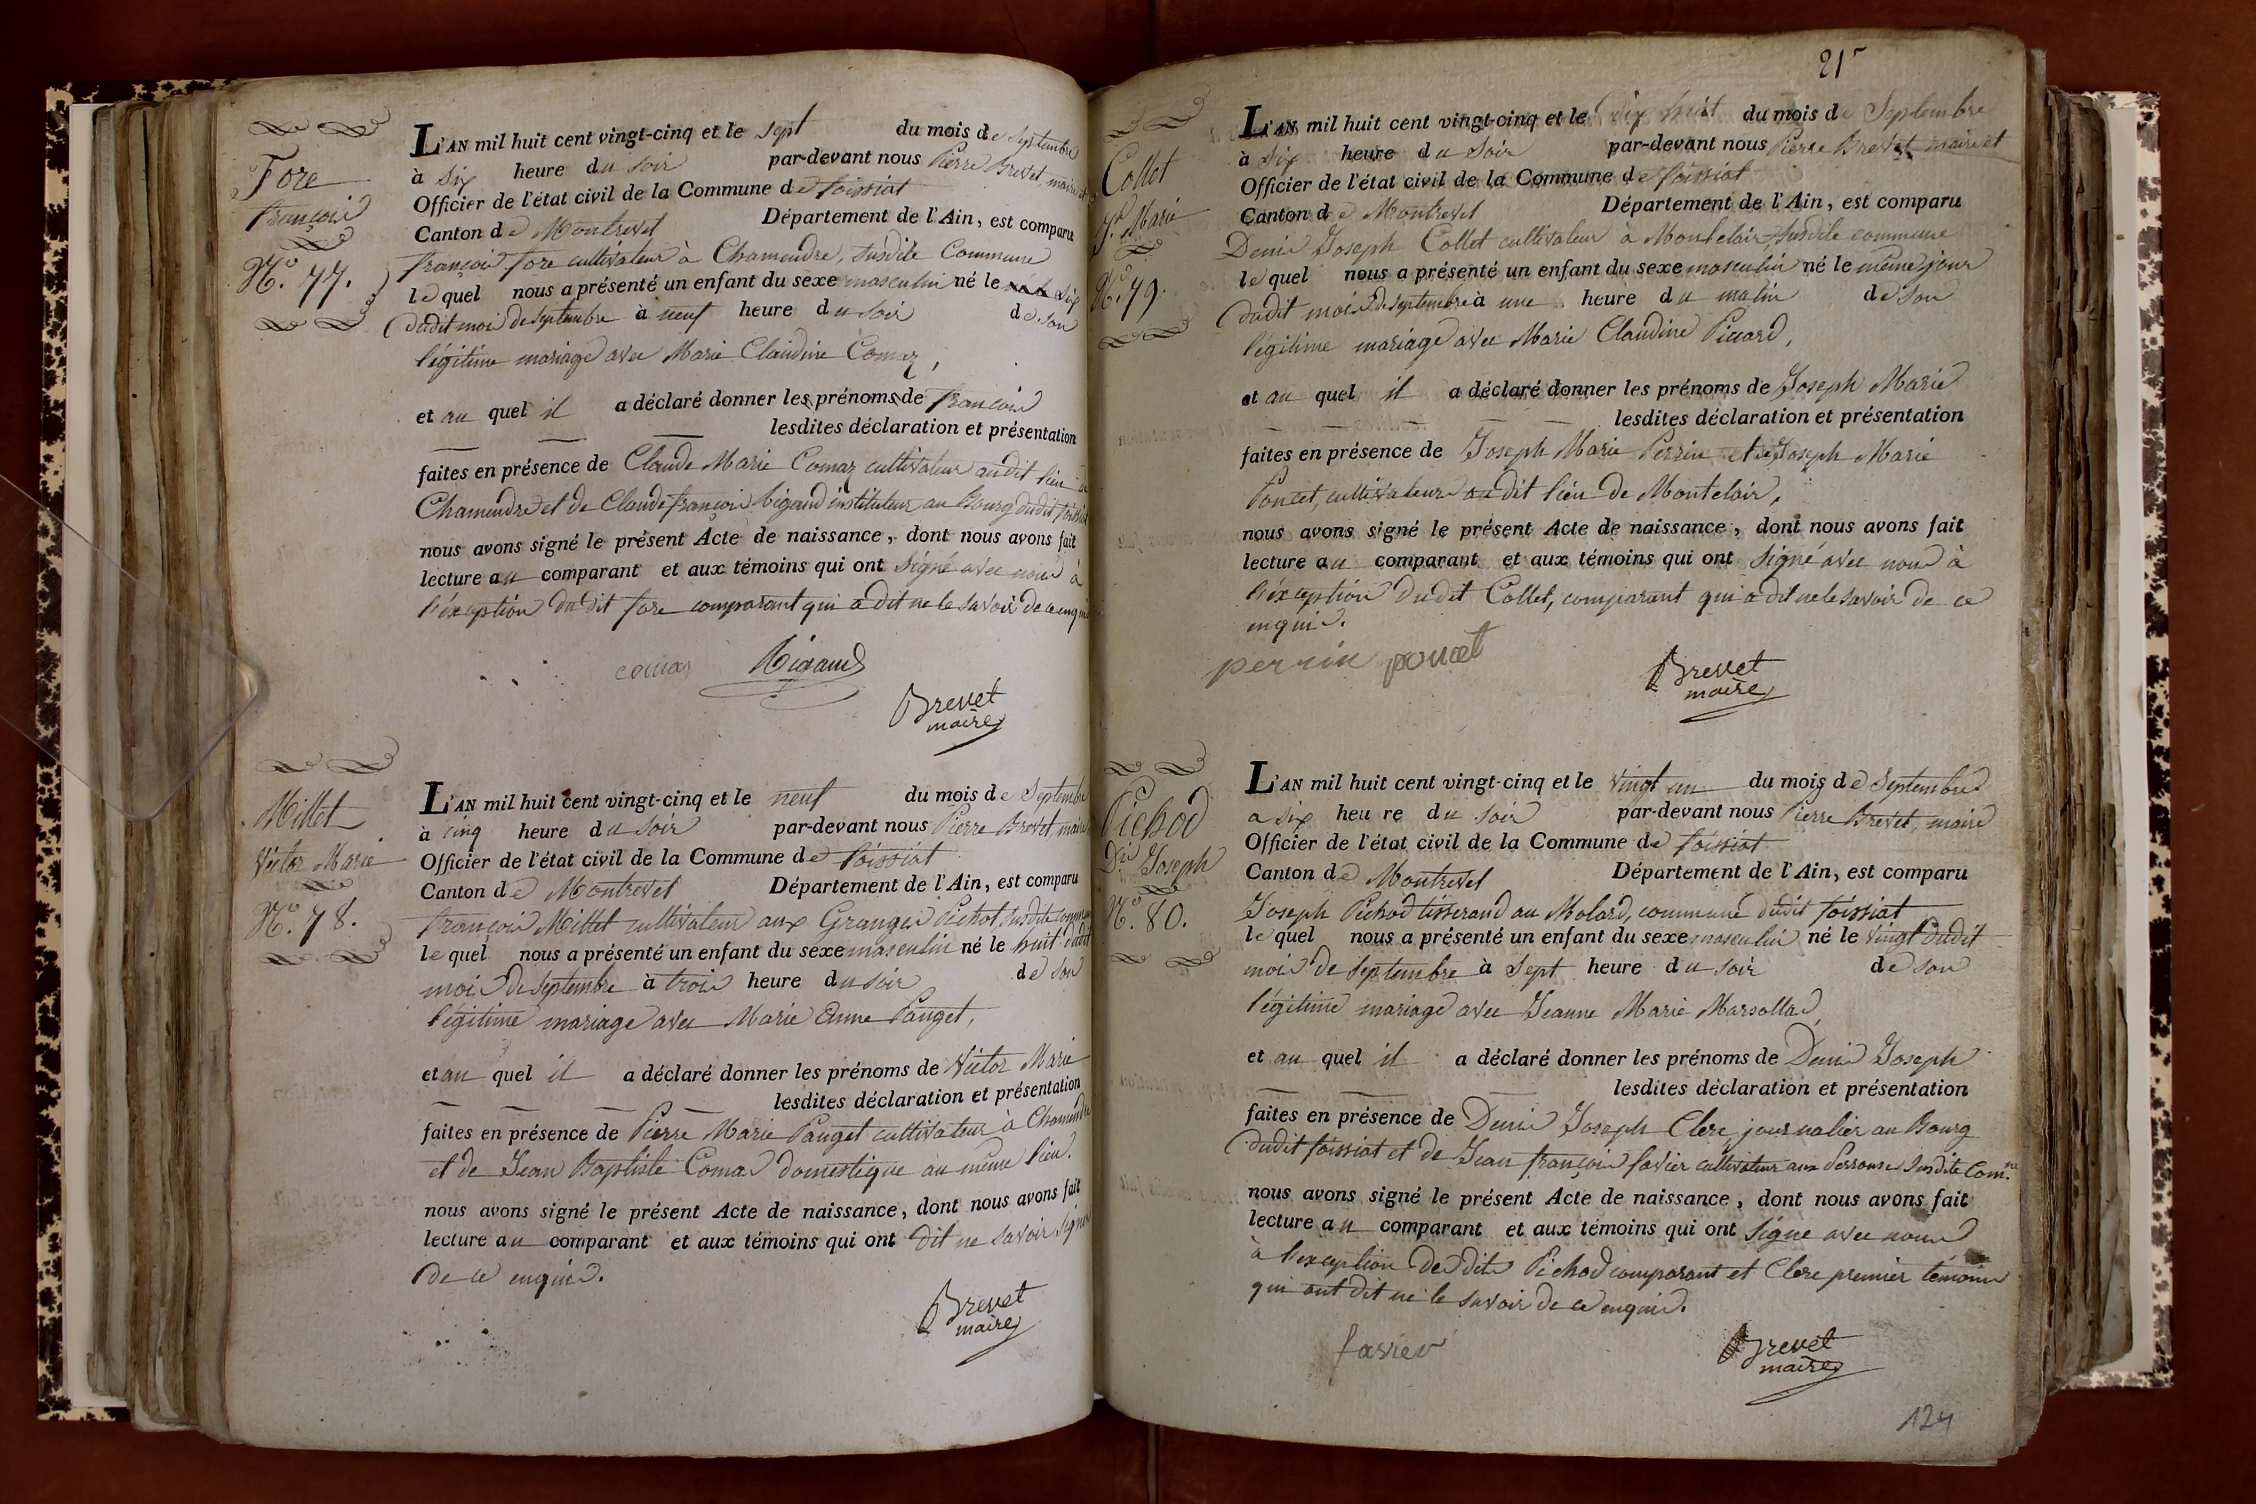 Fore
François
N.° 77.
L'AN mil huit cent vingt-cinq et le sept du mois de Septembre
à six heure du soir par-devant nous Pierre Brevet maire et
Officier de l'état civil de la Commune de foissiat
Canton de Montrevel Département de l'Ain, est comparu
françois fore cultivateur à Chamendre, susdite Commune
lequel nous a présenté un enfant du sexe masculin né le six
dudit mois de septembre à neuf heure du soir de son
légitime mariage avec Marie Claudine Comaz,
et au quel il a déclaré donner les prénoms de françois
lesdites déclaration et présentation
faites en présence de Claude Marie Comaz cultivateur audit lieu de
Chamendre et de Claude françois Rigaud instituteur au Bourg dudit foissiat
nous avons signé le présent Acte de naissance, dont nous avons fait
lecture au comparant et aux témoins qui ont signé avec nous à
l'éxception dudit fore comparant qui a dit ne le savoir de ce enquis
comas Rigaud
Brevet
maire
Millet
Victor Marie
N.° 78.
L'AN mil huit cent vingt-cinq et le neuf du mois de Septembre
à cinq heure du soir par-devant nous Pierre Brevet maire
Officier de l'état civil de la Commune de foissiat
Canton de Montrevel Département de l'Ain, est comparu
françois Millet cultivateur aux Granges Pichot, susdite commune
lequel nous a présenté un enfant du sexe masculin né le huit dudit
mois de septembre à trois heure du soir de son
légitime mariage avec Marie Anne Pauget,
et au quel il a déclaré donner les prénoms de Victor Marie
lesdites déclaration et présentation
faites en présence de Pierre Marie Pauget cultivateur à Chamendre
et de Jean Baptiste Comas domestique au même lieu.
nous avons signé le présent Acte de naissance, dont nous avons fait
lecture au comparant et aux témoins qui ont dit ne savoir signer
de ce enquis.
Brevet
maire
21
Collet
J.h Marie
N.° 79.
L'AN mil huit cent vingt-cinq et le dix huit du mois de Septembre
à six heure du soir par-devant nous Pierre Brevet maire et
Officier de l'état civil de la Commune de foissiat
Canton de Montrevel Département de l'Ain, est comparu
Denis Joseph Collet cultivateur à Montclair susdite commune
lequel nous a présenté un enfant du sexe masculin né le même jour
dudit mois de septembre à une heure du matin de son
légitime mariage avec Marie Claudine Picard,
et au quel il a déclaré donner les prénoms de Joseph Marie
lesdites déclaration et présentation
faites en présence de Joseph Marie Perrin et de Joseph Marie
Poncet, cultivateurs audit lieu de Montclair,
nous avons signé le présent Acte de naissance, dont nous avons fait
lecture au comparant et aux témoins qui ont signé avec nous à
l'éxception dudit Collet, comparant qui a dit ne le savoir de ce
enquis.
perrin poncet
Brevet
maire
Pichod
D.is Joseph
N.° 80.
L'AN mil huit cent vingt-cinq et le vingt un du mois de Septembre
a six heure du soir par-devant nous Pierre Brevet, maire
Officier de l'état civil de la Commune de foissiat
Canton de Montrevel Département de l'Ain, est comparu
Joseph Pichod tisserand au Molard, commune dudit foissiat
lequel nous a présenté un enfant du sexe masculin né le vingt dudit
mois de septembre à sept heure du soir de son
légitime mariage avec Jeanne Marie Marsollas,
et au quel il a déclaré donner les prénoms de Denis Joseph
lesdites déclaration et présentation
faites en présence de Denis Joseph Clerc, journalier au Bourg
dudit foissiat et de Jean françois favier cultivateur aux susdite Com.ne
nous avons signé le présent Acte de naissance, dont nous avons fait
lecture au comparant et aux témoins qui ont signé avec nous
à l'exception desdits Pichod comparant et Clerc premier témoin
qui ont dit ne le savoir de ce enquis.
favier
Brevet
maire
124